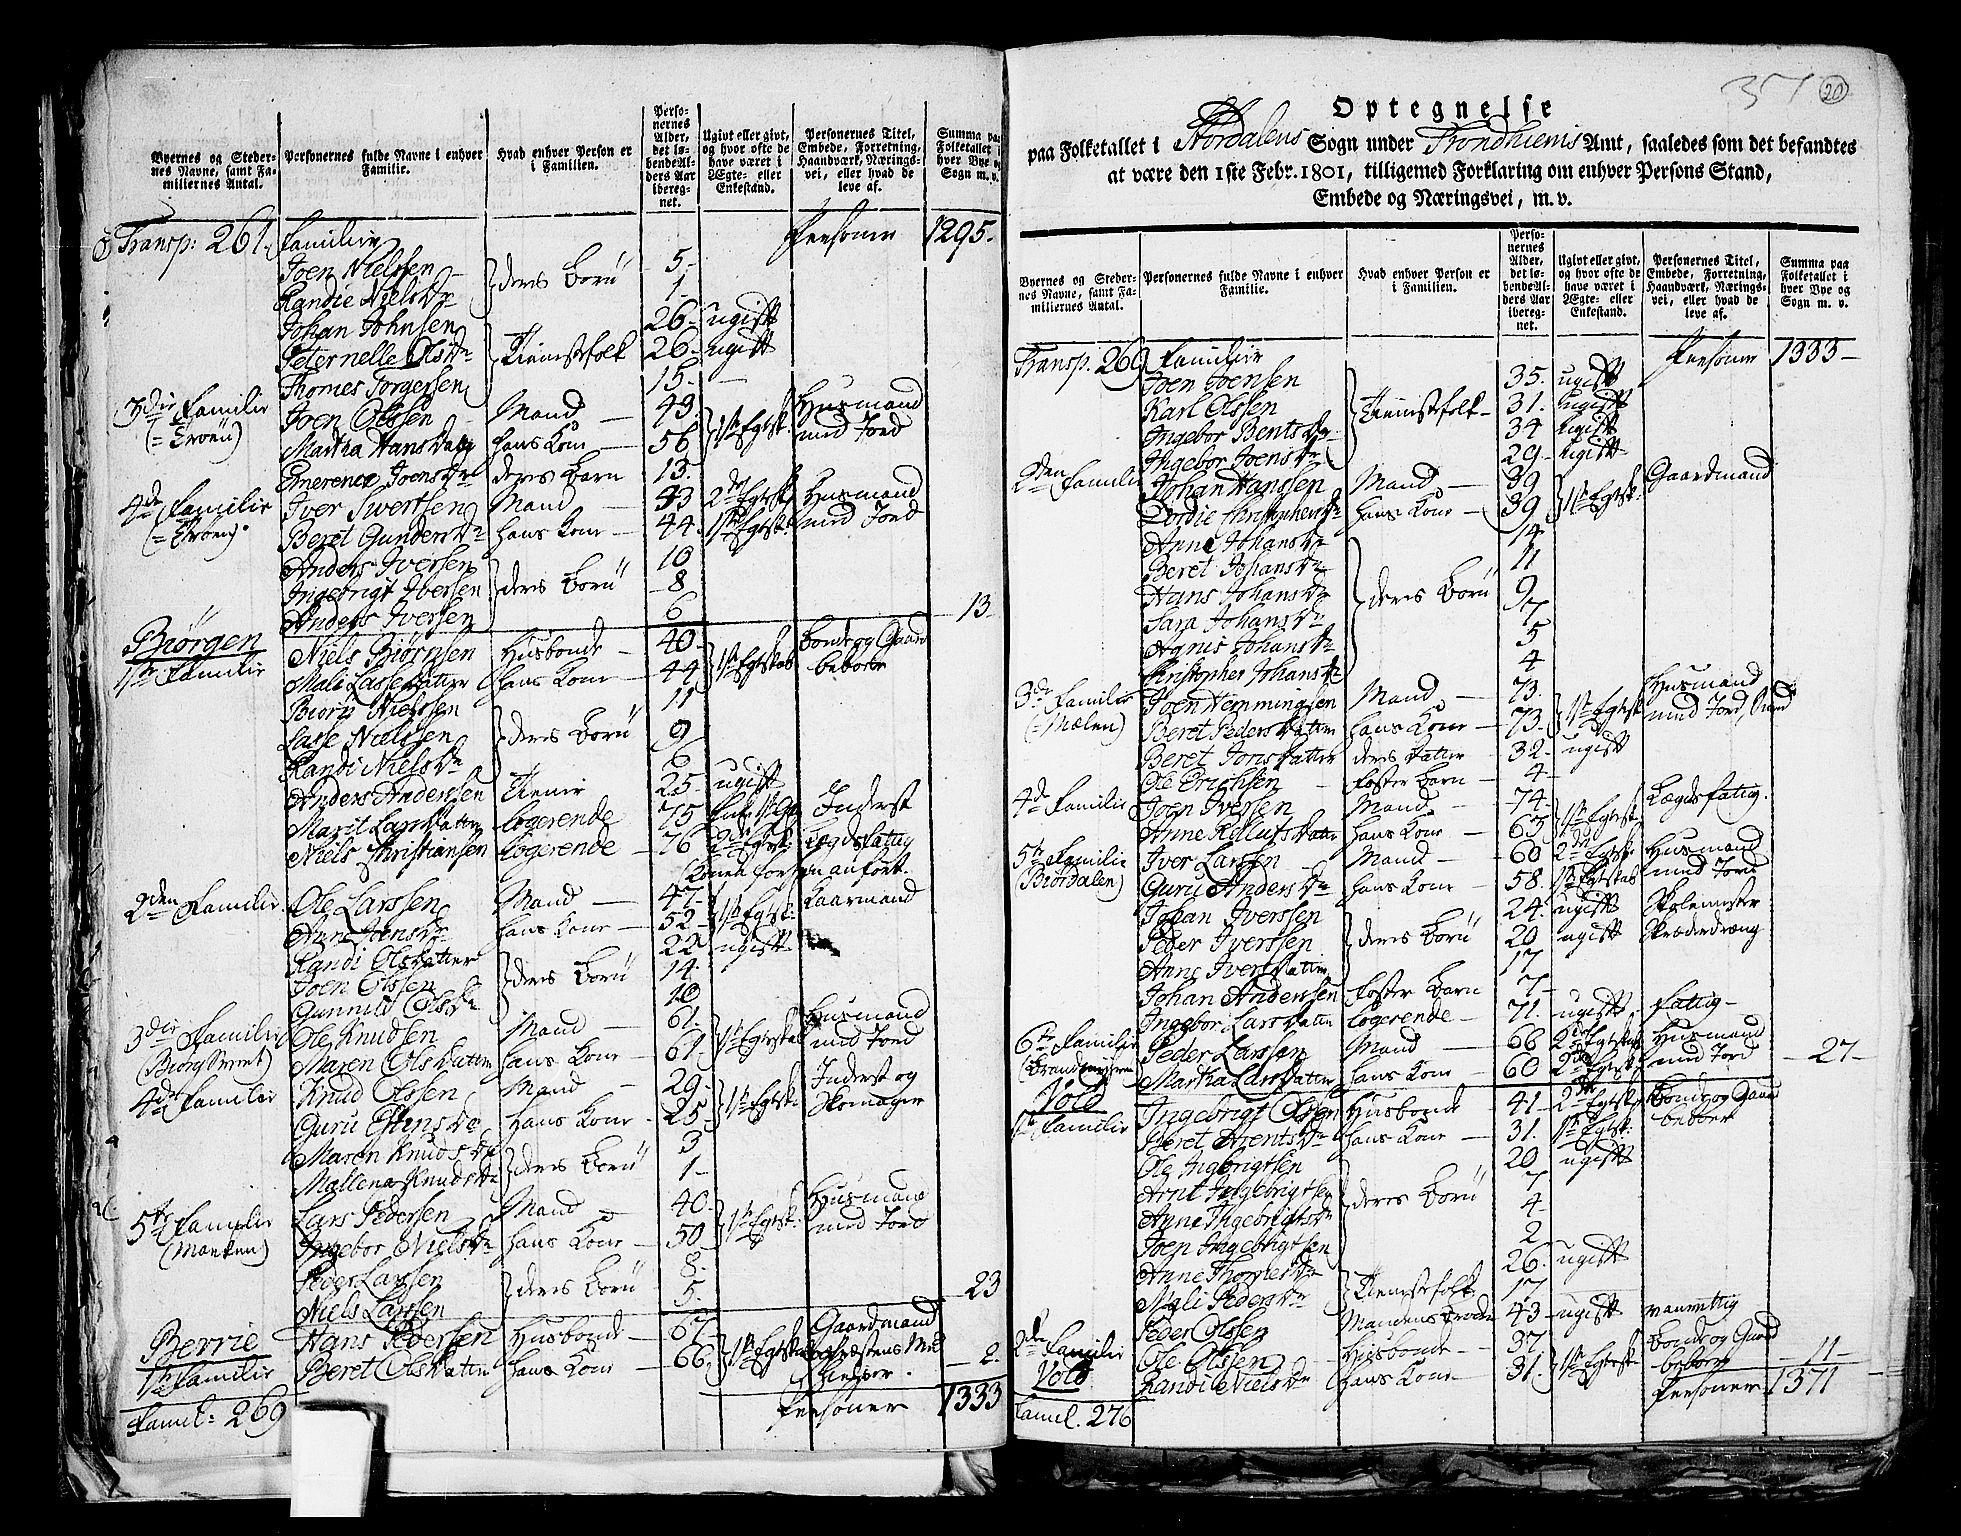 Byernes og Steder-
nes Navne, samt Fa-
miliernes Antal.
Personernes fulde Navne i enhver
Familie.
Hvad enhver Person er
i Familien.
Perso-
nernes
Alder,
det lø-
bende Al-
ders Aar
ibereg-
net.
Ugivt eller givt,
og hvor ofte de
have været i
Ægte- eller
Enkestand.
Personernes Titel,
Embede, Forretning,
Haandværk, Nærings-
vei, eller hvad de
leve af.
Summa paa
Folketallet i
hver Bye og
Sogn m. v.
Transp: 261. Familier Personer 1295.
Joen Nielssen deres børn 5
Randie Nielsdr 1
Johan Johnsen 26 ugift
Peternelle Olsdr Tienestefolk 26 ugift
Thomes Torgersen 15
3die Familie Joen Olssen Mand 49 1ste Egtesk. Huusmand
Martha Hansdatr hans Kone 56 med Jord
Emerence Joensdr deres barn 13
4de Familie Iver Swertsen Mand 43 2det Egtesk. Huusmand
Beret Gundersdr hans Kone 44 1ste Egtesk. med Jord
Anders Iversen 10
Ingebrigt Iversen deres børn 8
Anders Iversen 6 13
Biørgen Niels Biørnsen Husbonde 40 1ste Egteskab Bonde og Gaard
1ste Familie Mali Lassedatter hans Kone 44 beboer
Biørn Nielssen 11
Lasse Nielssen deres børn 9
Randi Nielsdr 6
Anders Anderssen Tiener 25 ugift
Marit Larsdatter Logerende 75 Inderst
Niels Christiansen Logerende 76 2det Egtesk. Lægdsfattig
2den Familie Ole Larssen Mand 47 1ste Egtesk. Kaarmand
Anne Joensdr hans Kone 52
Randi Olsdatter 22 ugift
Joen Olssen deres børn 14
Gunnild Olsdr 10
3die Familie Ole Knudsen Mand 61 1ste Egteskab Huusmand
Maren Olsdatter hans Kone 61 med Jord
4de Familie Knud Olssen Mand 29 1ste Egtesk. Inderst og
Guru Estensdr hans Kone 25 Skomager
Maren Knudsdr deres børn 3
Mallena Knudsdr 1
5te Familie Lars Pedersen Mand 40 1ste Egtesk. Huusmand
Ingebor Nielsdr hans Kone 50 med Jord
Peder Larssen deres børn 8
Niels Larssen 5 23
Berrie Hans Pedersen Husbonde 67 1ste Egteskab Gaardmand
1ste Familie Beret Olsdatter hans Kone 66 2
Famil: 269 Personer 1333
20
Optegnelse
paa Folketallet i Størdalens Sogn under Trondhiems Amt, saaledes som det befandtes
at være den 1ste Febr. 1801, tilligemed Forklaring om enhver Persons Stand,
Embede og Næringsvei, m. v.
Byernes og Steder-
nes Navne, samt Fa-
miliernes Antal.
Personernes fulde Navne i enhver
Familie.
Hvad enhver Person er
i Familien.
Perso-
nernes
Alder,
det lø-
bende Al-
ders Aar
ibereg-
net.
Ugivt eller givt,
og hvor ofte de
have været i
Ægte- eller
Enkestand.
Personernes Titel,
Embede, Forretning,
Haandværk, Nærings-
vei, eller hvad de
leve af.
Summa paa
Folketallet i
hver Bye og
Sogn m. v.
Transp. 269 Familier Personer 1333
Joen Joensen 35 ugift
Karl Olssen Tienestefolk 31 ugift
Ingebor Bentsdr 34 ugift
Ingebor Joensdr 29 ugift
2den Familie Johan Hanssen Mand 39 1ste Egtesk. Gaardmand
Dordie Christophersdr hans Kone 39
Anne Johansdr 14
Beret Johansdr 11
Hans Johansdr deres børn 9
Sara Johansdr 7
Agnis Johansdr 5
Christopher Johansdr 4
3die Familie Joen Hemmingsen Mand 73 1ste Egtesk. Huusmand
(Mælen) Beret Pedersdatter hans Kone 73 med Jord
Beret Jonsdatter deres datter 32 ugift
Ole Erichsen Foster barn 4
4de Familie Joen Iversen Mand 74 1ste Egtesk. Lægdsfattig
Anne Rollufsdatter hans Kone 63
5te Familie Iver Larssen Mand 60 2det Egtesk. Huusmand
(Biørdalen) Guru Andersdr hans Kone 58 1ste Egteskab med Jord
Johan Iverssen 24 ugift Skolemester
Peder Iverssen deres børn 20 ugift Skræderdreng
Anne Iversdatter 17
Johan Anderssen Foster barn 7
Ingebor Larsdatter Logerende 71 ugift Fattig
6te Familie Peder Larssen Mand 66 2det Egteskab Huusmand
Martha Larsdatter hans Kone 60 2det Egtesk. med Jord 27
Vold Ingebrigt Olssen Husbonde 41 2det Egtesk. Bonde og Gaard
1ste Familie Beret Arentsdr hans Kone 31 1ste Egtesk. beboer
Ole Ingebrigtsen 20 ugift
Arnt Ingebrigtsen deres børn 7
Anne Ingebrigtsdr 4
Joen Ingebrigtsen 2
Anne Thomesdr Tienestefolk 26 ugift
Mali Pedersdr 17
Peder Olssen Mandens broder 43 ugift vanvittig
2den Familie Ole Olssen Husbonde 37 1ste Egtesk. Bonde og Gaard
Vold Randi Nielsdr hans Kone 31 beboer 11
Famil. 276 Personer 1371